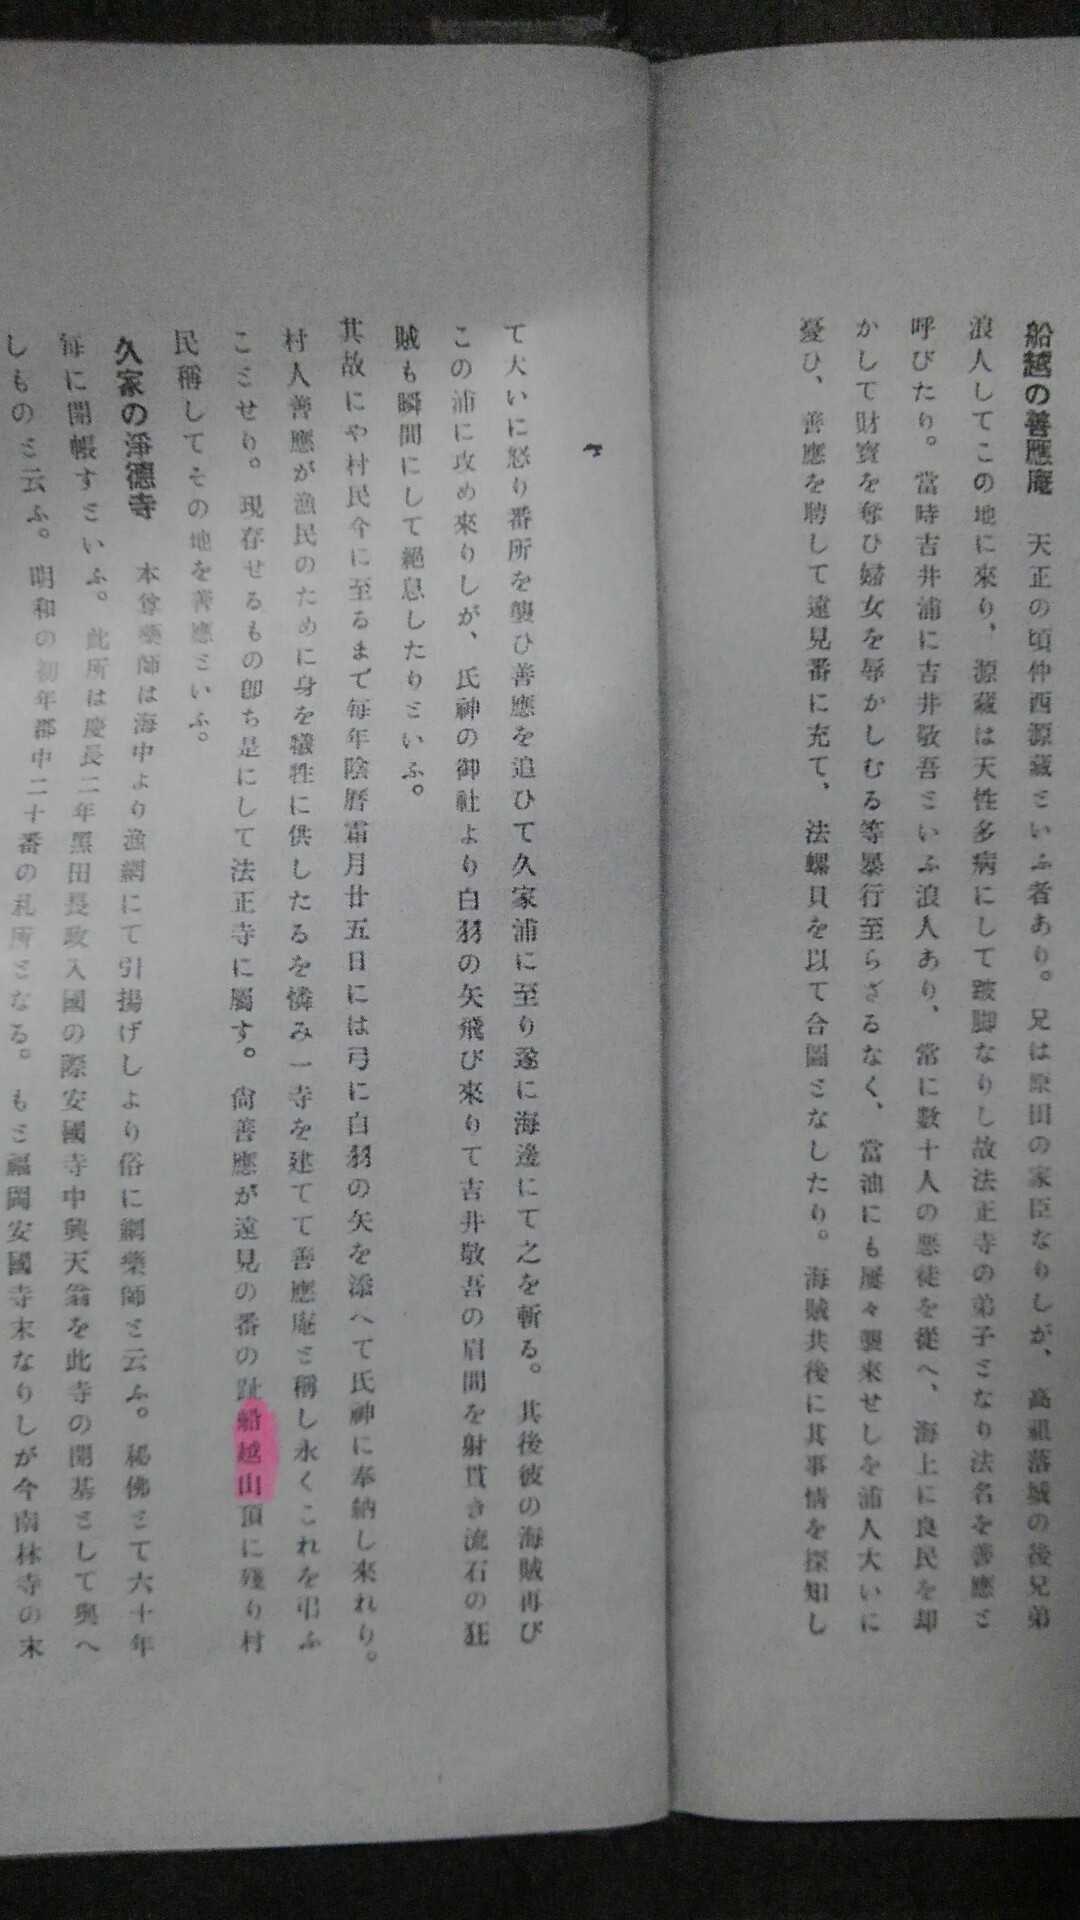 船越の善應庵　天正の頃仲西源藏ミいふ者あり。兄は原田の家臣なりしが、高祖落城の後兄弟
浪人してこの地に來り、源藏は天性多病にして跛脚なりし故法正寺の弟子ミなり法名を善應ミ
呼びたり。當時吉井浦に吉井敬吾ミいふ浪人あり、常に數十人の惡徒を從へ、海上に良民を却
かして財寶を奪ひ婦女を辱かしむる等暴行至らざるなく、當浦にも屡々襲來せしを浦人大いに
憂ひ、善應を聘して遠見番に充て、法螺貝を以て合圖ミなしたり。海賊共後に其事情を探知し
て大いに怒り番所を襲ひ善應を追ひて久家浦に至り遂に海邊にて之を斬る。其後彼の海賊再び
この浦に攻め來りしが、氏神の御社より白羽の矢飛び來りて吉井敬吾の眉間を射貫き流石の狂
賊も瞬間にして絕息したりミいふ。
其故にや村民今に至るまで每年陰曆霜月廿五日には弓に白羽の矢を添へて氏神に奉納し來れり。
村人善應が漁民のために身を犧牲に供したるを憐み一寺を建てて善應庵ミ稱し永くこれを弔ふ
こミせり。現存せるもの卽ち是にして法正寺に屬す。尙善應が遠見の番の趾船越山頂に殘り村
民稱してその地を善應ミいふ。
久家の淨德寺　本尊藥師は海中より漁網にて引揚げしより俗に網藥師ミ云ふ。秘佛ミて六十年
每に開帳すミいふ。此所は慶長二年黑田長政入國の際安國寺中興天翁を此寺の開基ミして與へ
しものミ云ふ。明和の初年郡中二十番の札所ミなる。もミ福岡安國寺末なりしが今南林寺の末